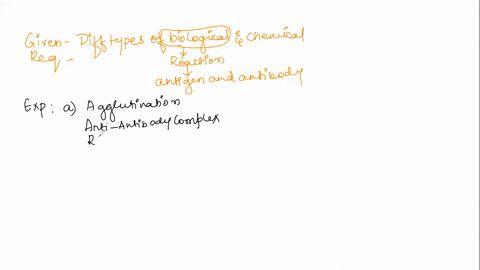 Given- Diff types of biological & chemical
Req -
Reaction
antigen and antibody
Exp: a) Agglutination
Anti-Antibody Complex
R